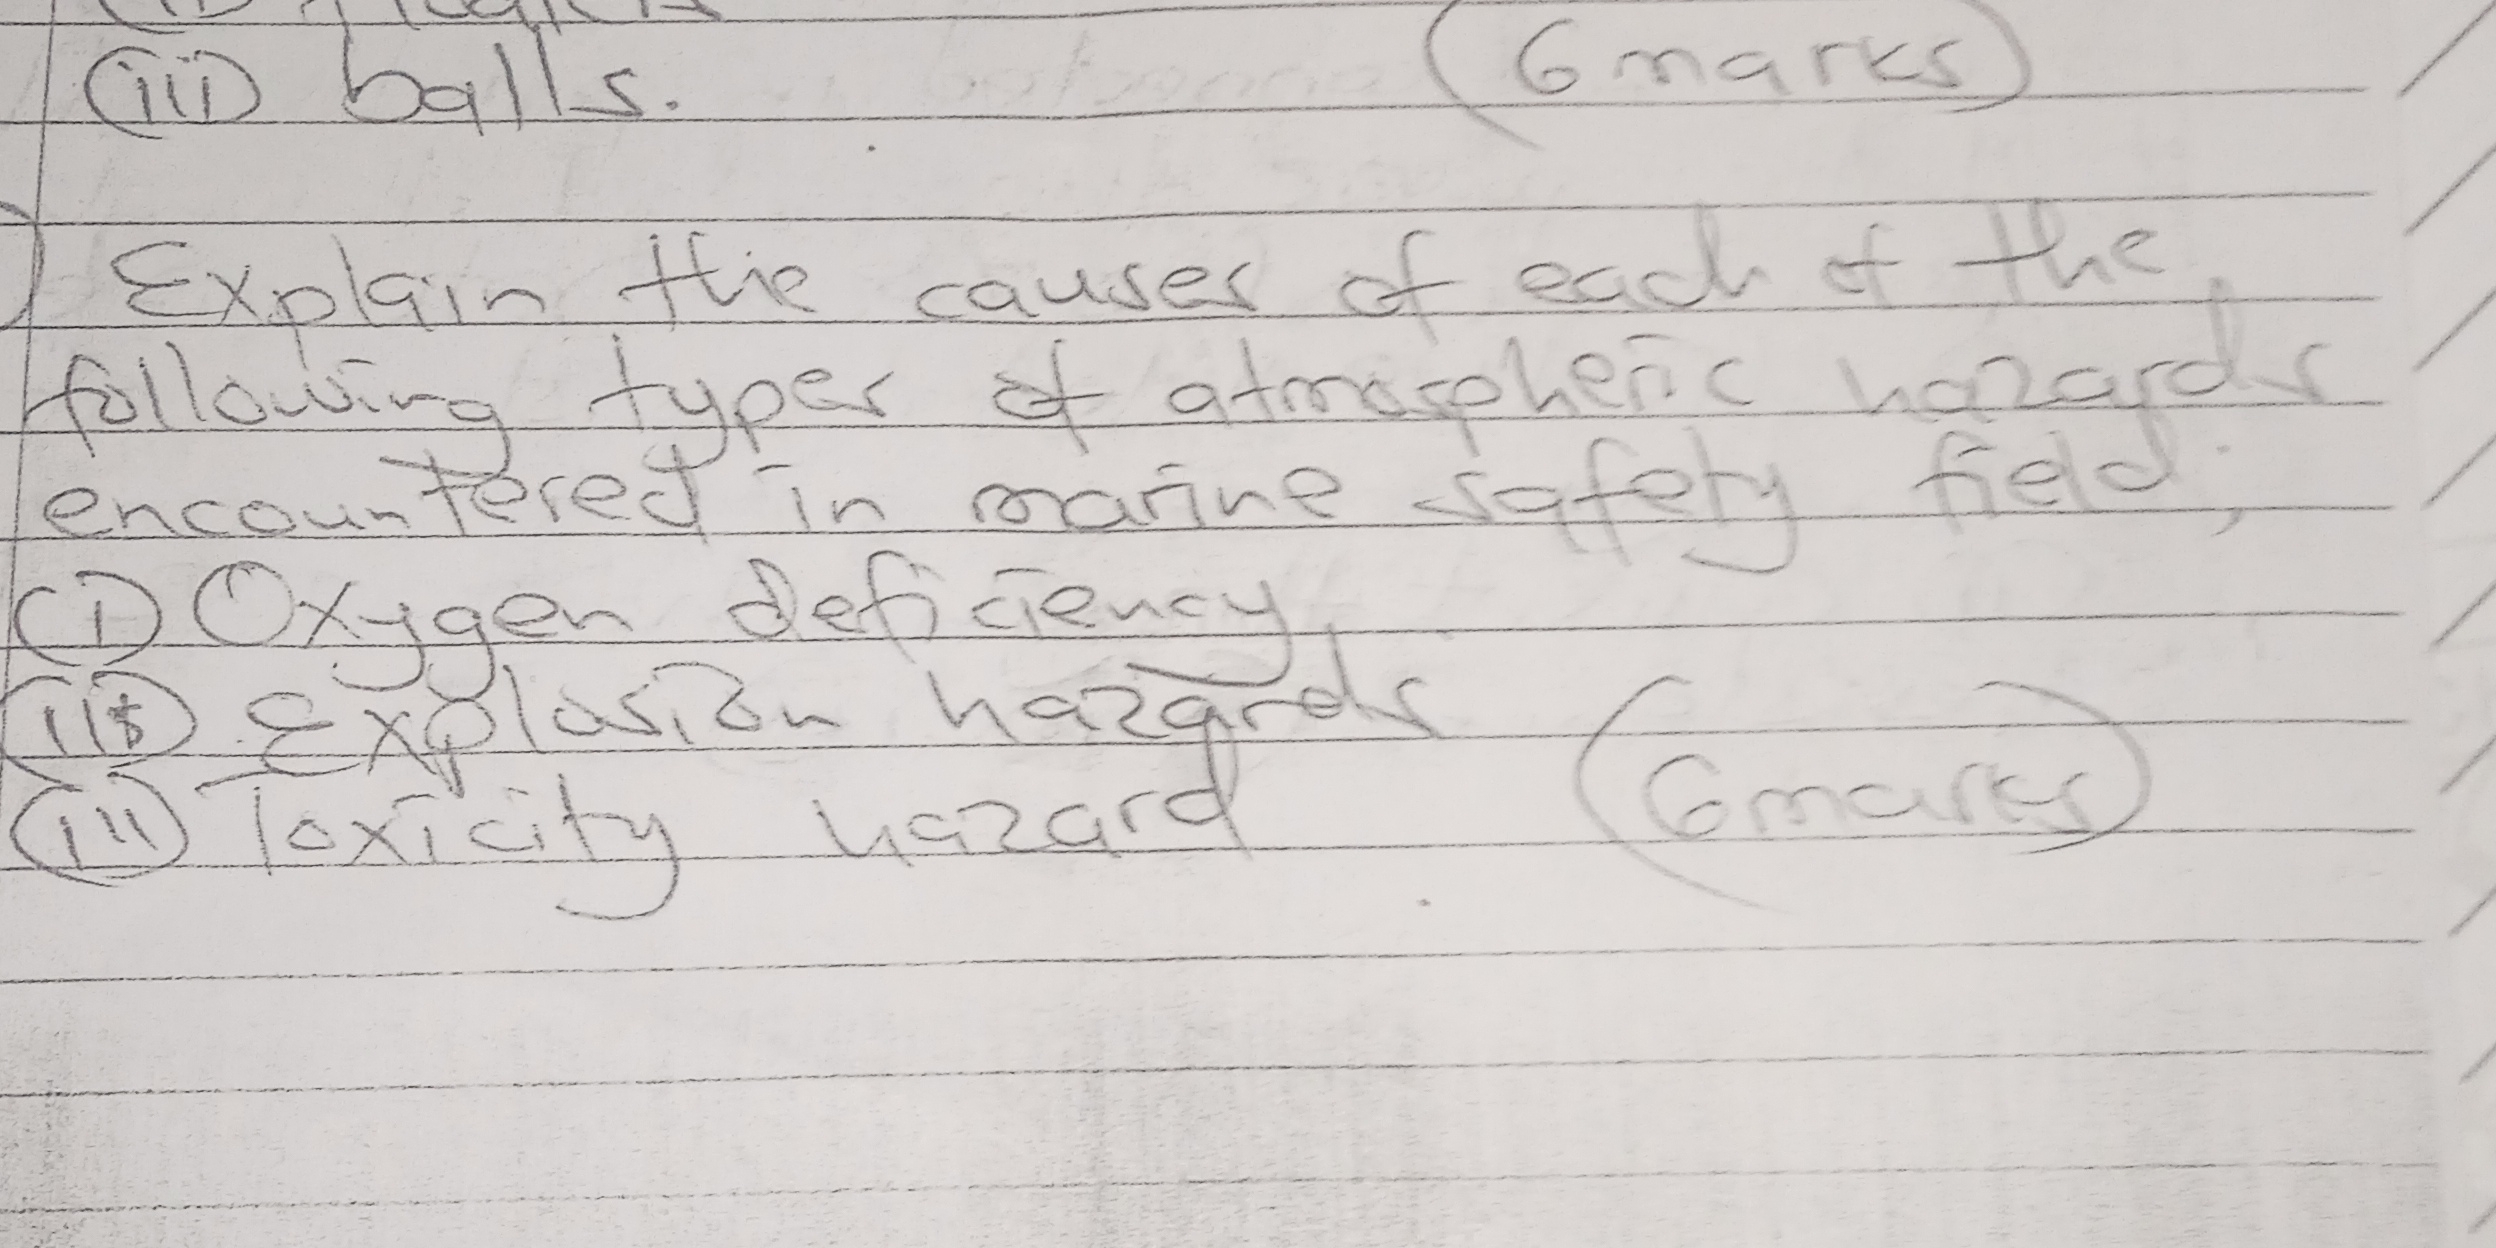 (iii) balls. (6 marks)
Explain the causes of each of the
following types of atmospheric hazards
encountered in marine safety field;
(i) Oxygen deficiency
(ii) Explosion hazards
(iii) Toxicity hazard (6 marks)